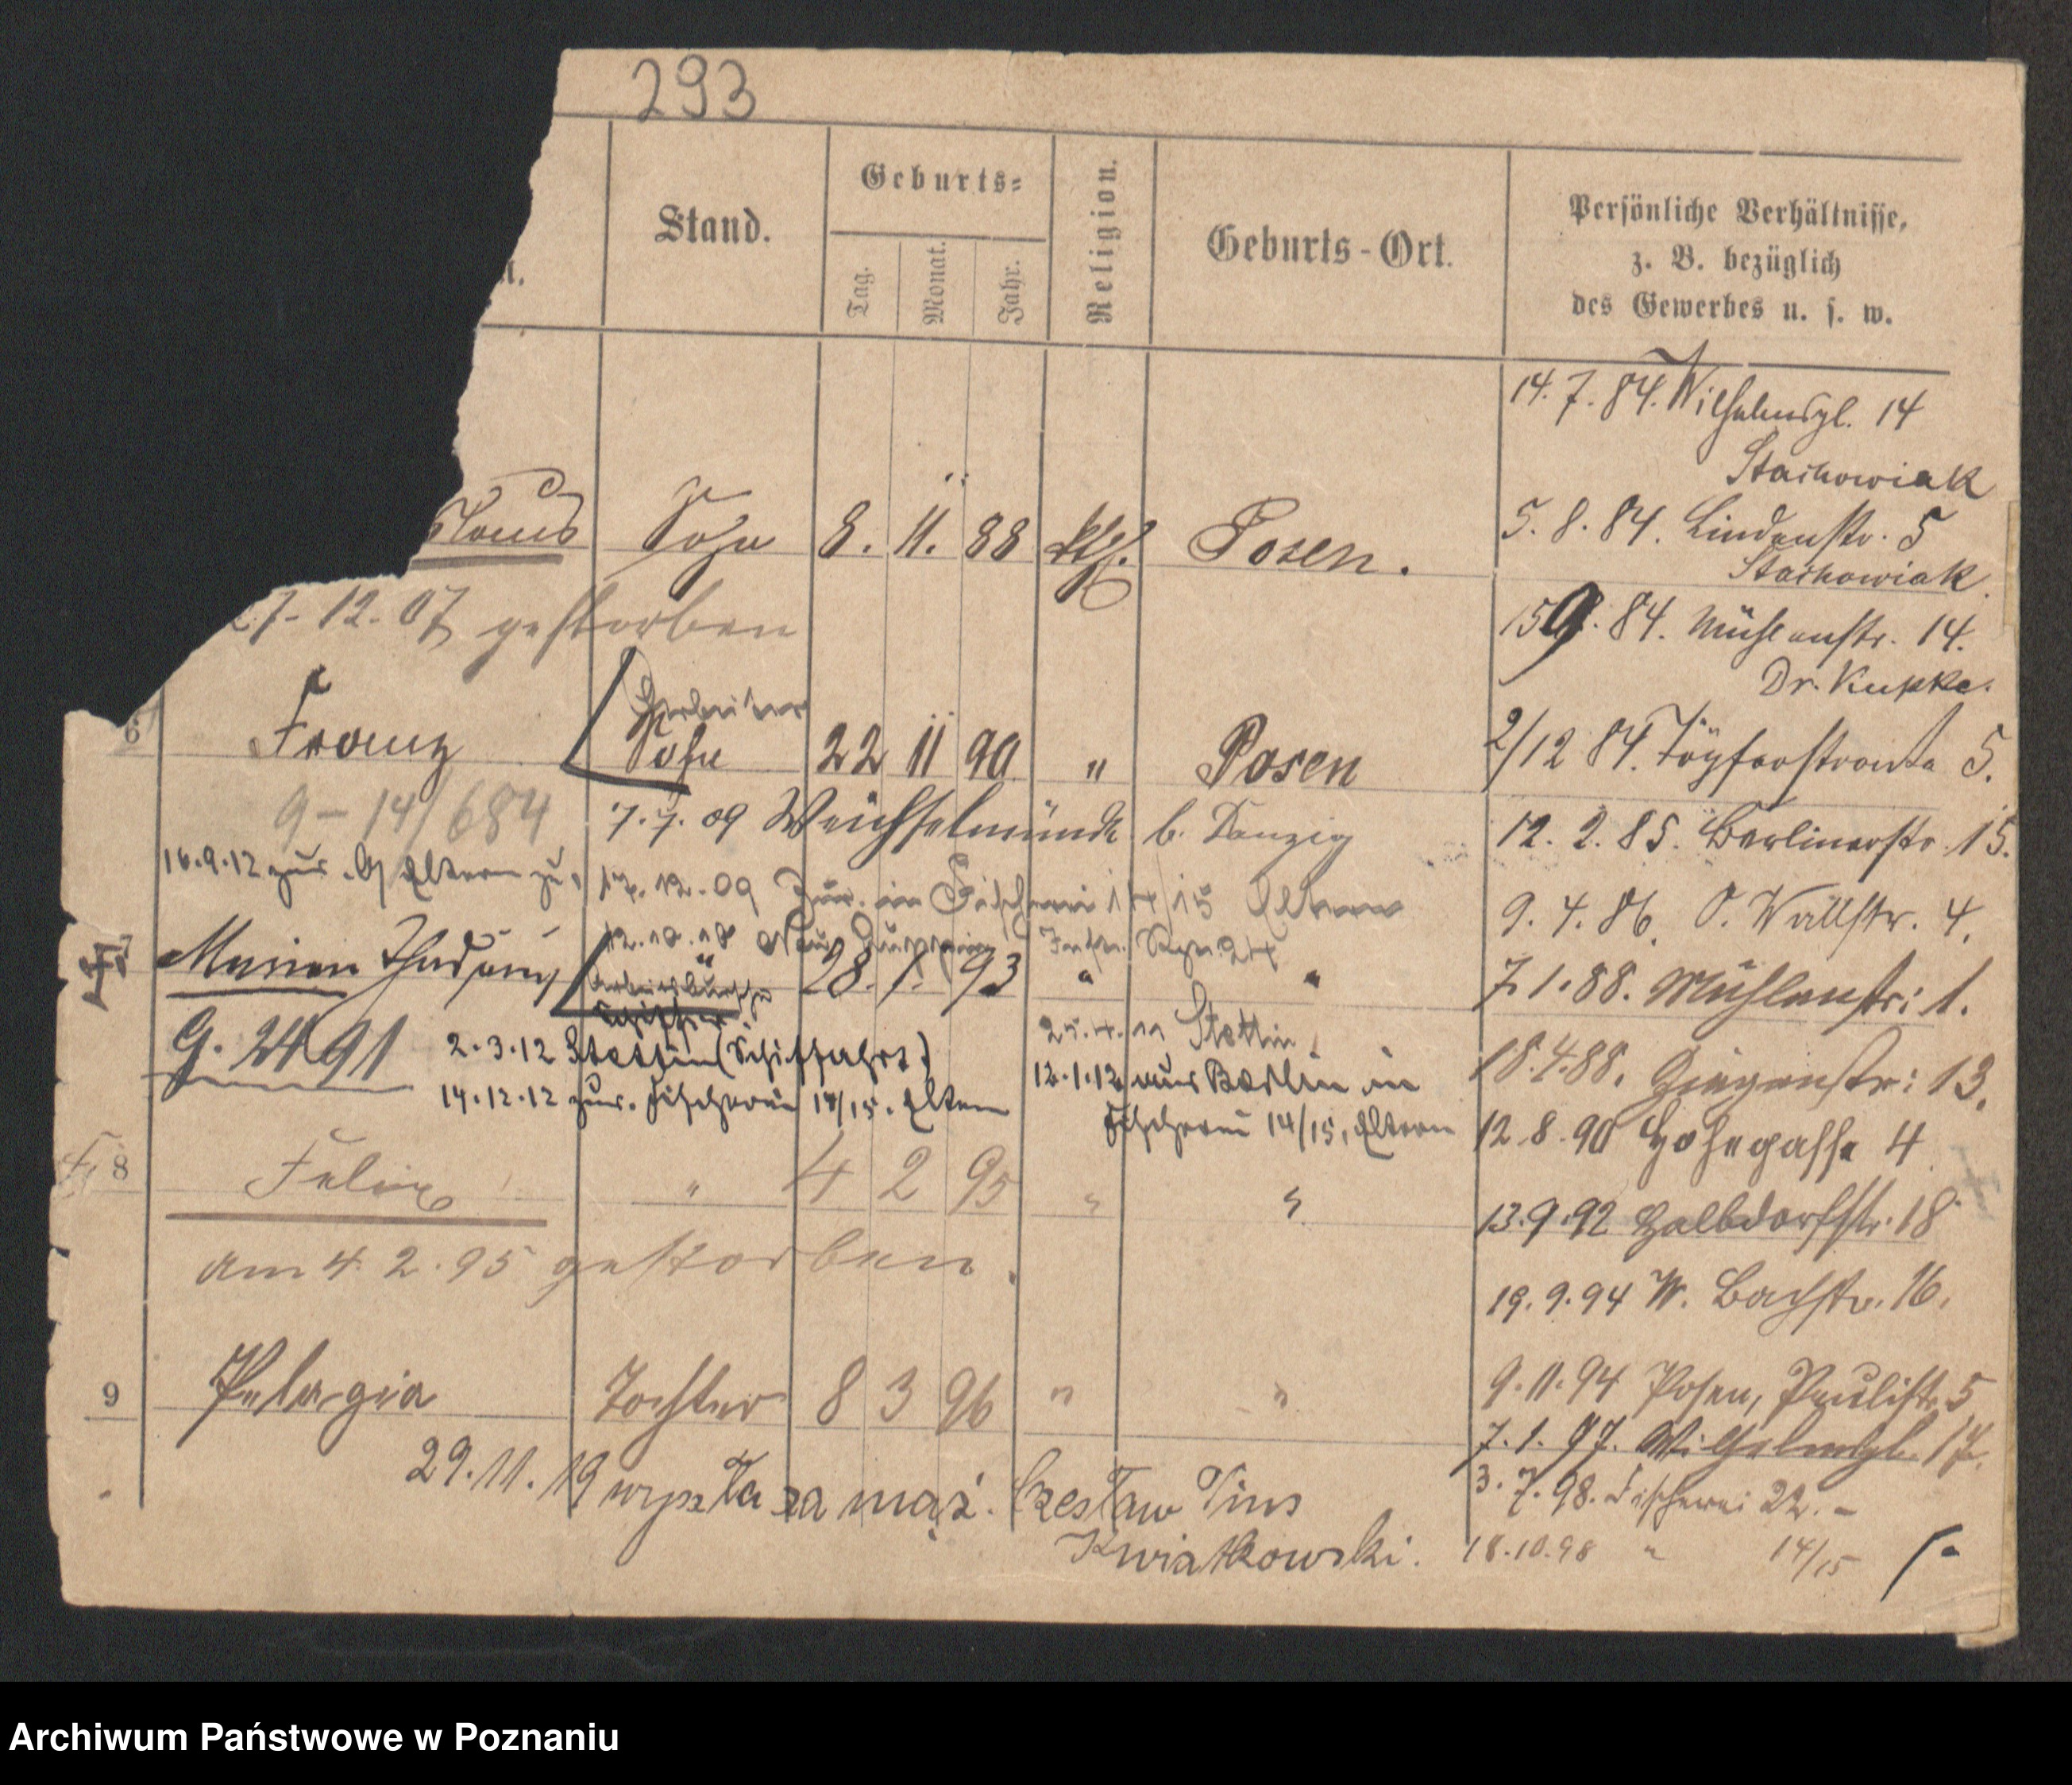 293
Stand.
Geburts-
Tag.
Monat.
Jahr.
Religion.
Geburts-Ort.
Persönliche Verhältnisse,
z. B. bezüglich
des Gewerbes u. s. w.
14. 7. 84. Wilhelmspl. 14
Stachowiak
Sohn 8. 11. 88 kth. Posen.
5. 8. 84. Lindenstr. 5
Stachowiak.
12. 07 gestorben
15 9. 84. Mühlenstr. 14.
Dr. Kupke.
Arbeiter
6 Franz Sohn 22 11 90 " Posen
2/12 84. Töpferstraße 5.
9-14/684
7. 7. 09 Weichselmünde b. Danzig
12. 2. 85. Berlinerstr. 15.
16.9.12 zur. Eltern
17. 12. 09 Zur. in Fischerei 14/15 Eltern
9. 4. 86. O. Wallstr. 4.
12. 10. 10 Neu Ruppin
Marian 28. 1. 93 " "
Arbeitsbursche
Schiffer.
7. 1. 88. Mühlenstr: 1.
G. 2491
25. 4. 11 Stettin
2.3.12 Stettin (Schiffahrt)
12.1.12 aus Berlin in
Fischerei 14/15, Eltern
14.12.12 zur. Fischerei 14/15. Eltern
18. 4. 88. Ziegenstr: 13.
12. 8. 90 Hohegasse 4
8 Felix " 4 2 95 " "
13. 9. 92 Halbdorfstr. 18
am 4. 2. 95 gestorben.
19. 9. 94 W. Bachstr. 16.
9 Pelagia Tochter 8 3 96 " "
9. 11. 94 Posen, Paulistr. 5
7. 1. 97. Wilhelmspl. 17.
29. 11. 19 wyszła za mąż. Czesław Pius
Kwiatkowski.
3. 7. 98. Fischerei 22. -
18. 10. 98 " 14/15
Archiwum Państwowe w Poznaniu